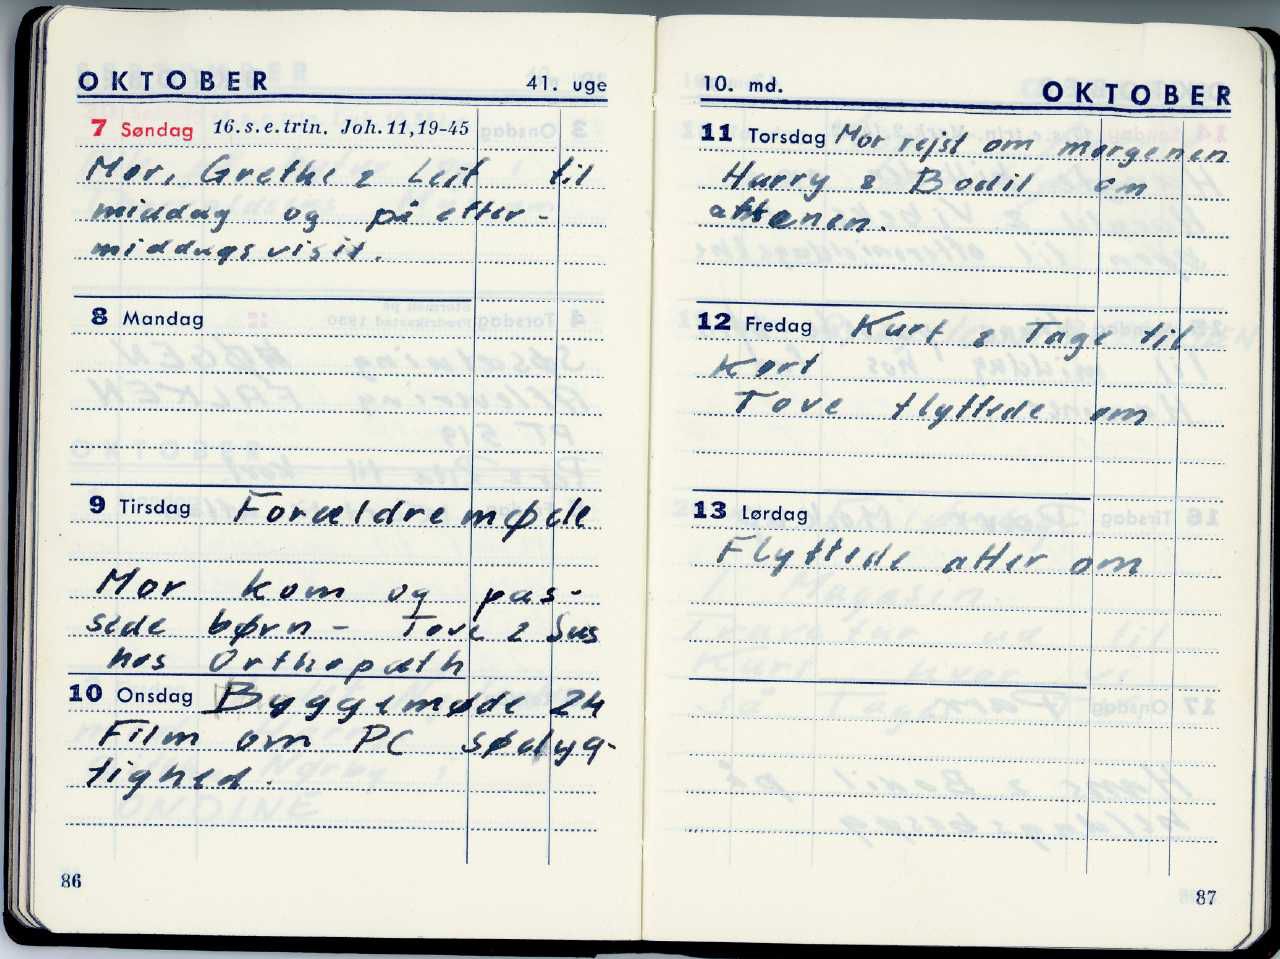 OKTOBER 41. uge
7 Søndag 16.s.e.trin. Joh.11,19-45
Mor, Grethe & Leif til
middag og på efter-
middagsvisit.
8 Mandag
9 Tirsdag Forældremøde
Mor kom og pas-
sede børn - Tove & Sus
hos Orthopæth
10 Onsdag Byggemøde 24
Film om PC sødyg-
tighed.
86
10. md. OKTOBER
11 Torsdag Mor rejst om morgenen
Harry & Bodil om
aftenen.
12 Fredag Kurt & Tage til
Kort
Tove flyttede om
13 Lørdag
Flyttede atter om
87